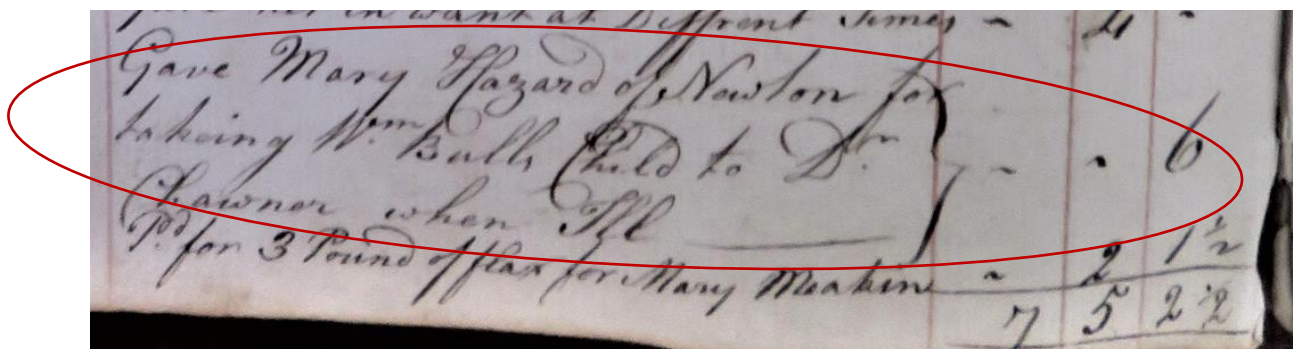 her in want at Diffrent Times - 4 -
Gave Mary Hazard of Newton for
takeing Wm Balls Child to Dr - - 6
Chawner when Ill
Pd for 3 Pound of flax for Mary Meakin - 2 1½
7 5 2½